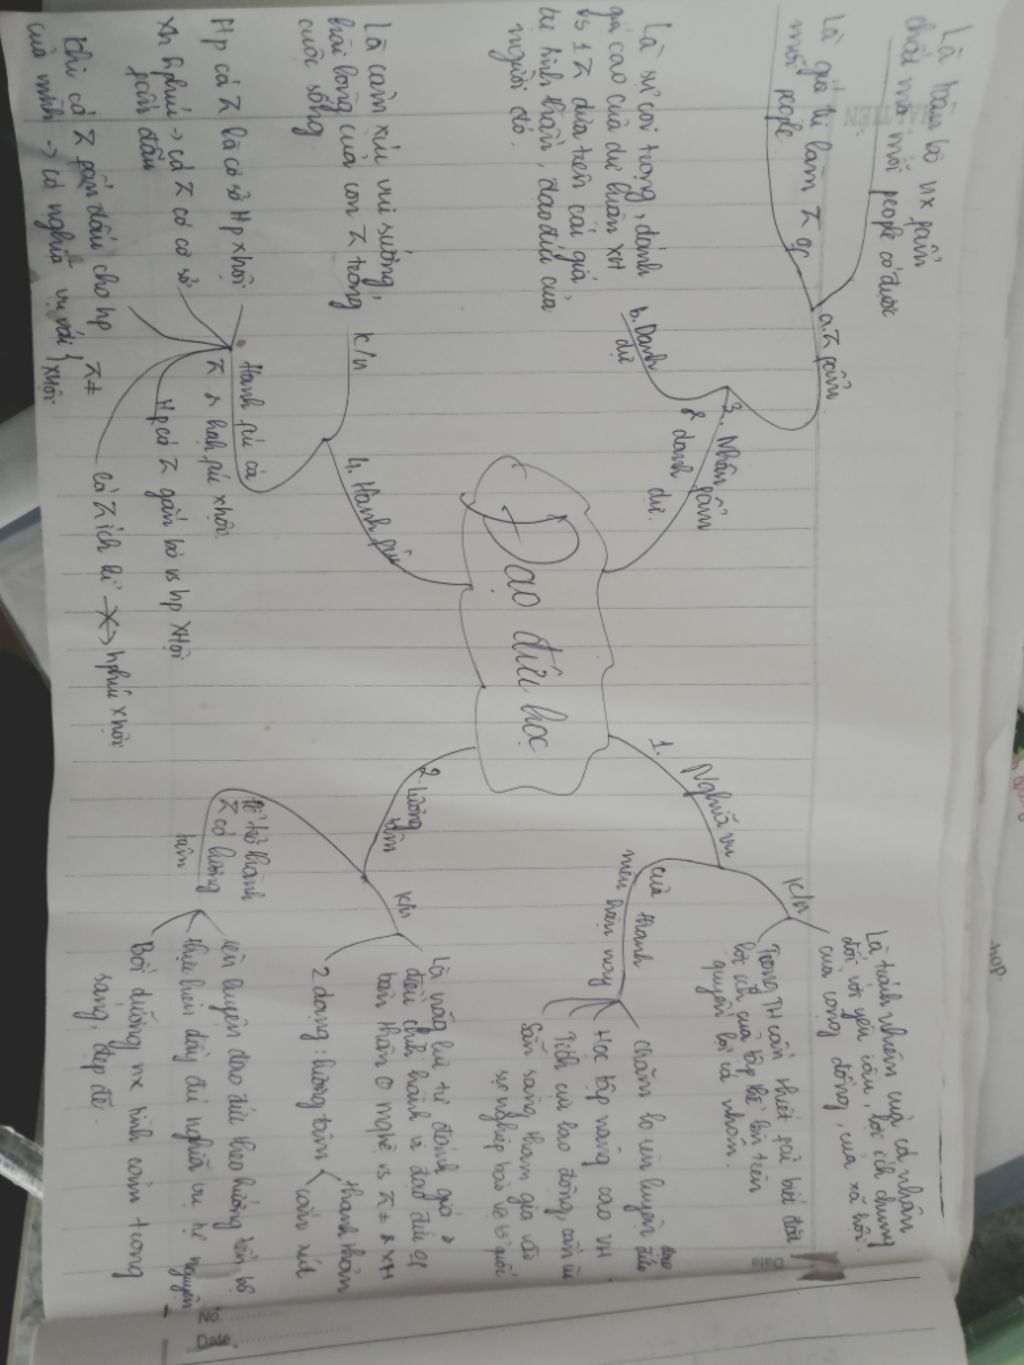 Đạo đức học
1. Nghĩa vụ
K/n
Là trách nhiệm của cá nhân
đối với yêu cầu, lợi ích chung
của cộng đồng, của xã hội.
Trong TH cần thiết phải biết đặt
lợi ích của tập thể lên trên
quyền lợi cá nhân.
của thanh
niên hiện nay
Chăm lo rèn luyện đạo đức
Học tập nâng cao VH
Tích cực lao động, cần cù
Sẵn sàng tham gia vào
sự nghiệp bảo vệ tổ quốc
2. Lương
tâm
K/n
Là năng lực tự đánh giá &
điều chỉnh hành vi đạo đức of
bản thân
2 dạng: lương tâm
thanh thản
cắn rứt
Để trở thành
có lương
tâm
rèn luyện đạo đức theo hướng tiến bộ
thực hiện đầy đủ nghĩa vụ
Bồi dưỡng
tình cảm trong
sáng, đẹp đẽ.
3. Nhân fẩm
& danh dự.
a. fẩm
Là toàn bộ nx fẩm
chất mà mỗi people có được
Là giá trị làm
mỗi people.
b. Danh
dự
Là sự coi trọng, đánh
giá cao của dư luận XH
vs 1 dựa trên các giá
trị tinh thần, đạo đức của
người đó.
4. Hạnh fúc
K/n
Là cảm xúc vui sướng,
hài lòng của con trong
cuộc sống
Hạnh fúc cá
& hạh fúc xhội.
Hp cá là cơ sở Hp xhội
Xh hphúc → cá có cơ sở
fấn đấu
Khi cá fấn đấu cho hp
của mình → có nghĩa vụ với
XHội.
Hp cá gắn bó vs hp XHội
cá ích kỉ hphúc xhội.
No.
Date
Date